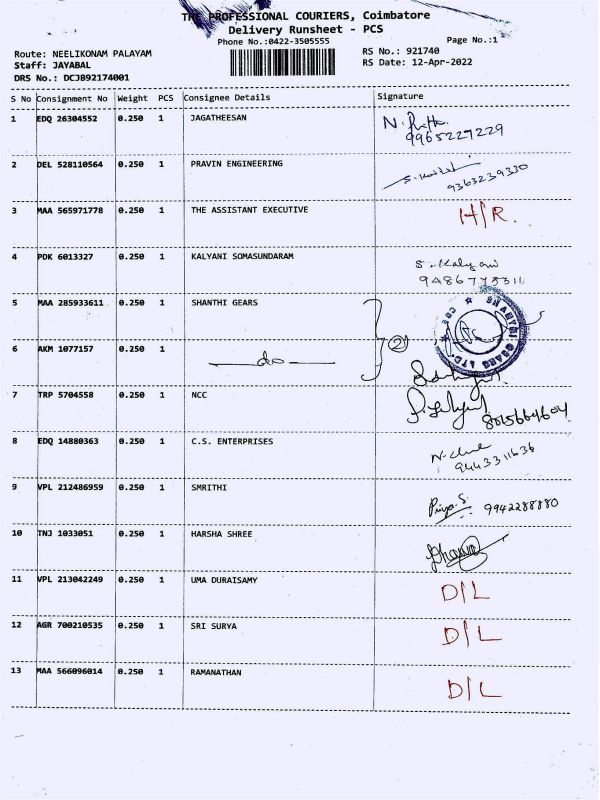 THE PROFESSIONAL COURIERS, Coimbatore
Delivery Runsheet - PCS
Phone No.:0422-3505555
Page No.:1
Route: NEELIKONAM PALAYAM
RS No.: 921740
Staff: JAYABAL
RS Date: 12-Apr-2022
DRS No.: DCJB92174001
S No Consignment No Weight PCS Consignee Details Signature
1 EDQ 26304552 0.250 1 JAGATHEESAN N.
9965227229
2 DEL 528110564 0.250 1 PRAVIN ENGINEERING
9363239330
3 MAA 565971778 0.250 1 THE ASSISTANT EXECUTIVE H/R.
4 PDK 6013327 0.250 1 KALYANI SOMASUNDARAM S. Kalyani
9486775311
5 MAA 285933611 0.250 1 SHANTHI GEARS
SHANTHI GEARS LTD. CBE
6 AKM 1077157 0.250 1 do 2
7 TRP 5704558 0.250 1 NCC
8015664604
8 EDQ 14880363 0.250 1 C.S. ENTERPRISES
9443311636
9 VPL 212486959 0.250 1 SMRITHI Priya. S. 9942288880
10 TNJ 1033051 0.250 1 HARSHA SHREE
11 VPL 213042249 0.250 1 UMA DURAISAMY D/L
12 AGR 700210535 0.250 1 SRI SURYA D/L
13 MAA 566096014 0.250 1 RAMANATHAN D/L